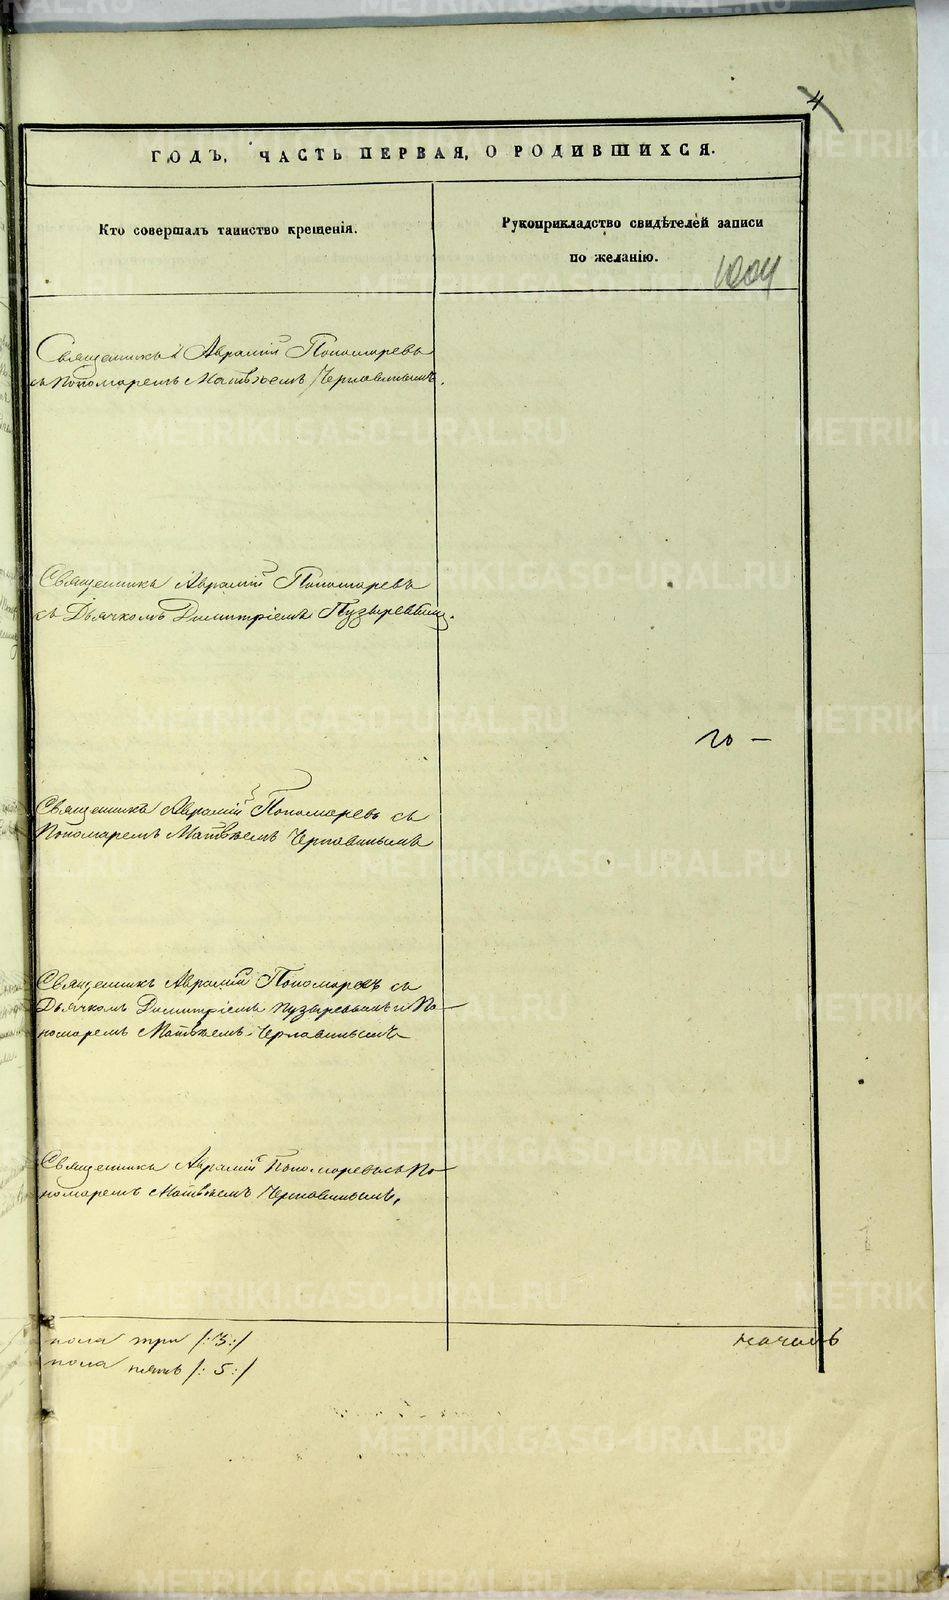 4
ГОДЪ, ЧАСТЬ ПЕРВАЯ, О РОДИВШИХСЯ.
Кто совершалъ таинство крещенія.
Рукоприкладство свидѣтелей записи
по желанію.
Священникъ Аврамій Пономаревъ
съ Пономаремъ Матвѣемъ Чернавинымъ.
Священникъ Аврамій Пономаревъ
съ Дьячкомъ Димитріемъ Пузыревымъ.
Священникъ Аврамій Пономаревъ съ
Пономаремъ Матвѣемъ Чернавинымъ
Священникъ Аврамій Пономаревъ съ
Дьячкомъ Димитріемъ Пузыревымъ и По-
номаремъ Матвѣемъ Чернавинымъ
Священникъ Аврамій Пономаревъ съ По-
номаремъ Матвѣемъ Чернавинымъ,
пола три /:3:/
пола пять /:5:/
METRIKI.GASO-URAL.RU